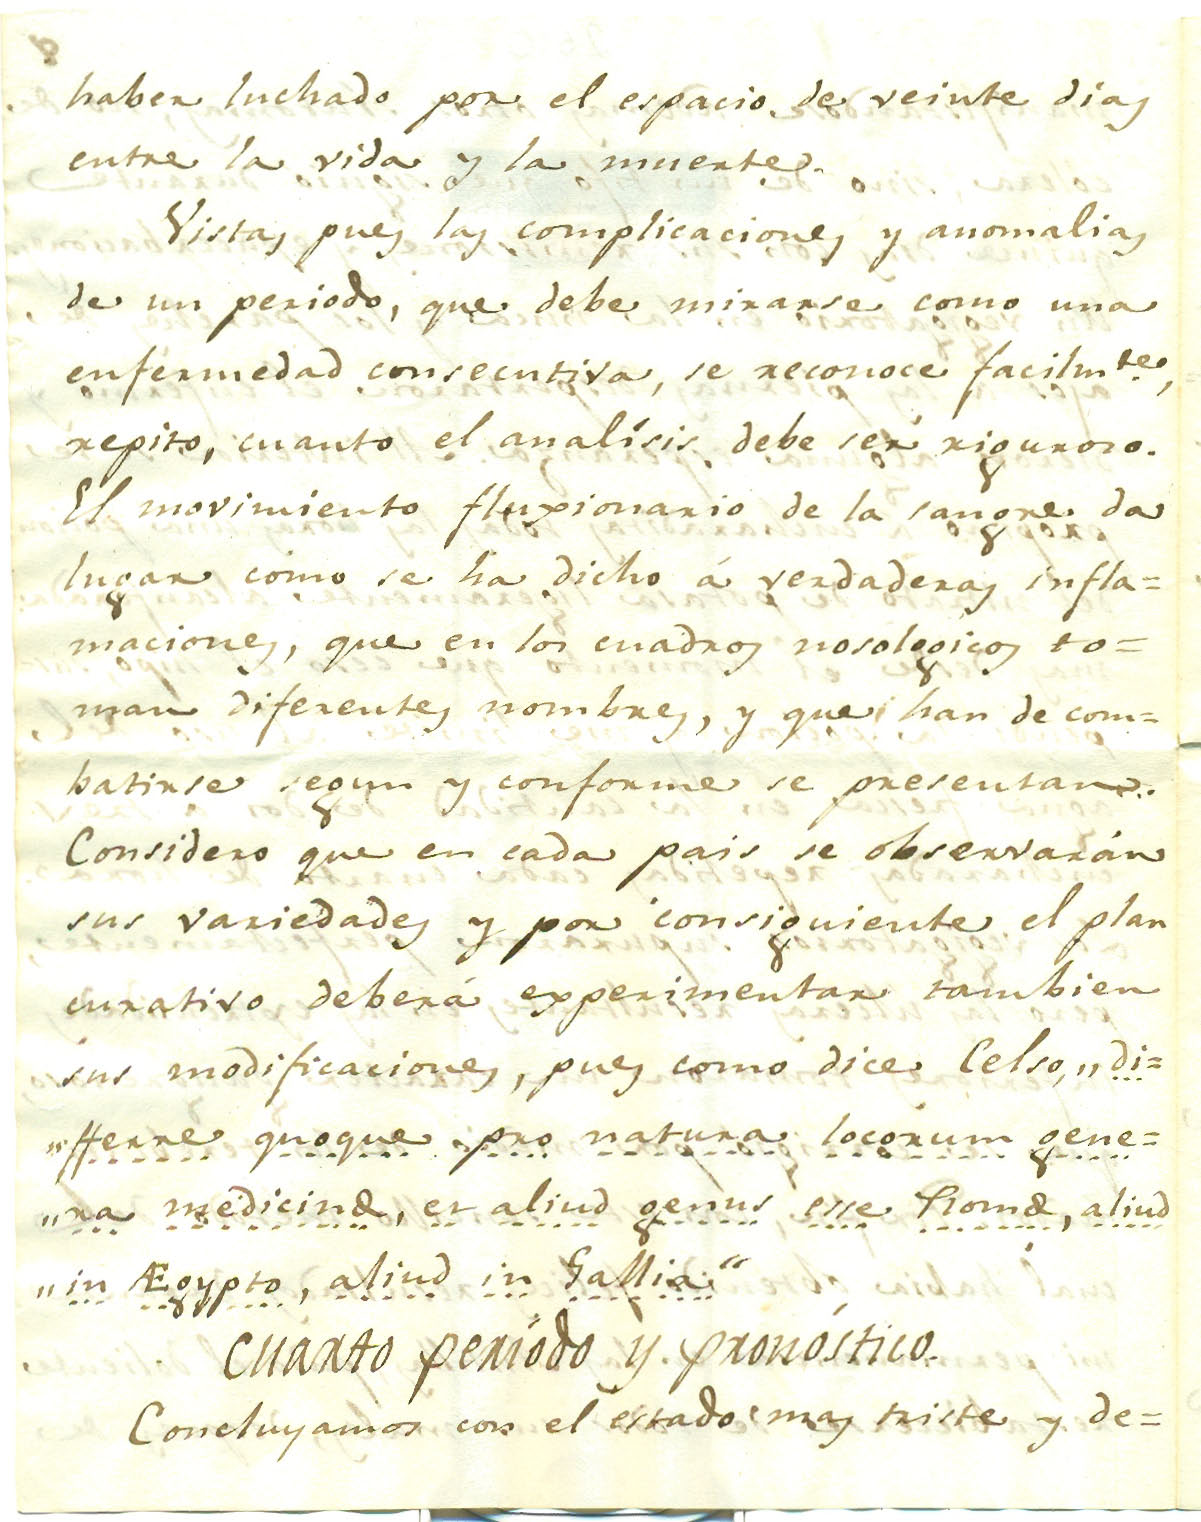 haber luchado por el espacio de veinte dias
entre la vida y la muerte.
Vistas pues las complicaciones y anomalias
de un periodo, que debe mirarse como una
enfermedad consecutiva, se reconoce facilmte,
repito, cuanto el analísis debe ser riguroso.
El movimiento fluxionario de la sangre da
lugar como se ha dicho á verdaderas infla=
maciones, que en los cuadros nosologicos to=
man diferentes nombres, y que han de com=
batirse segun y conforme se presentan.
Considero que en cada pais se observarán
sus variedades y por consiguiente el plan
curativo deberá experimentar tambien
sus modificaciones, pues como dice Celso, „di=
„fferre quoque pro natura locorum gene=
„ra medicinæ, et aliud genus esse Romæ, aliud
„in Ægypto, aliud in Gallia“
Cuarto período y pronóstico.
Concluyamos con el estado mas triste y de=